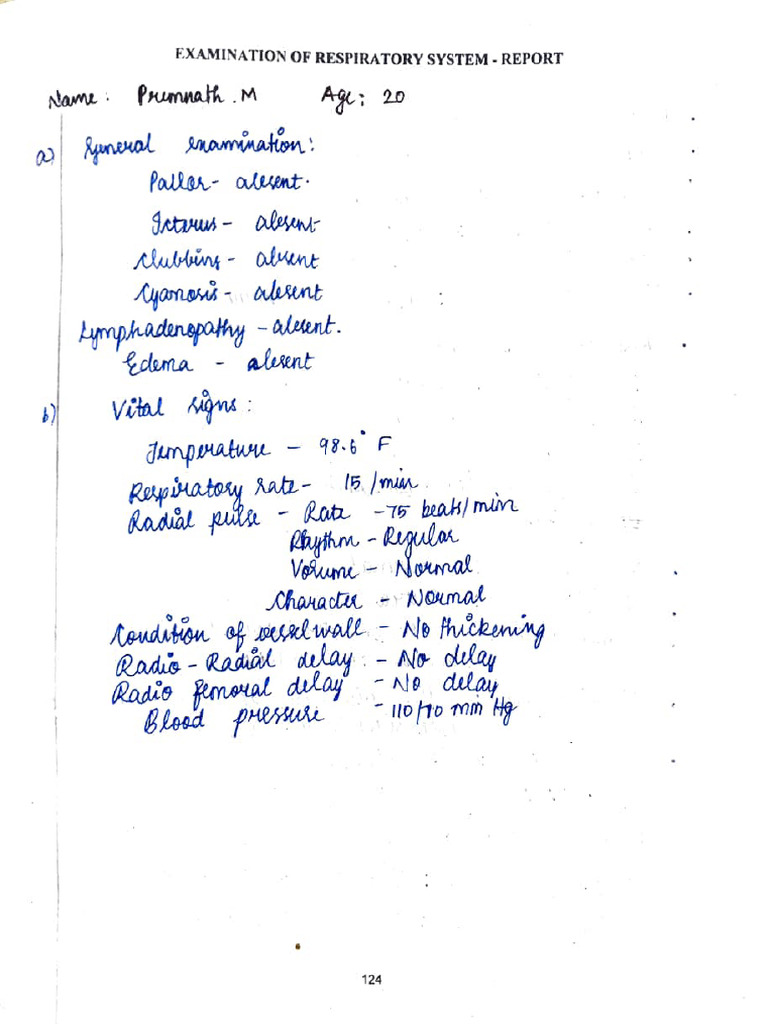 EXAMINATION OF RESPIRATORY SYSTEM - REPORT
Name: Premnath .M Age: 20
a) General examination:
Pallor - absent.
Icterus - absent
Clubbing - absent
Cyanosis - absent
Lymphadenopathy - absent.
Edema - absent
b) Vital signs:
Temperature - 98.6° F
Respiratory rate - 15 /min
Radial pulse - Rate - 75 beats/min
Rhythm - Regular
Volume - Normal
Character - Normal
Condition of vessel wall - No thickening
Radio - Radial delay - No delay
Radio femoral delay - No delay
Blood pressure - 110/70 mm Hg
124